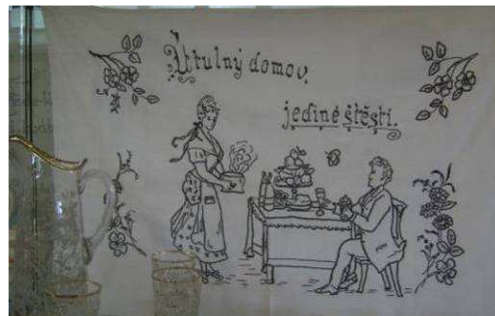 Útulný domov,
jediné štěstí.